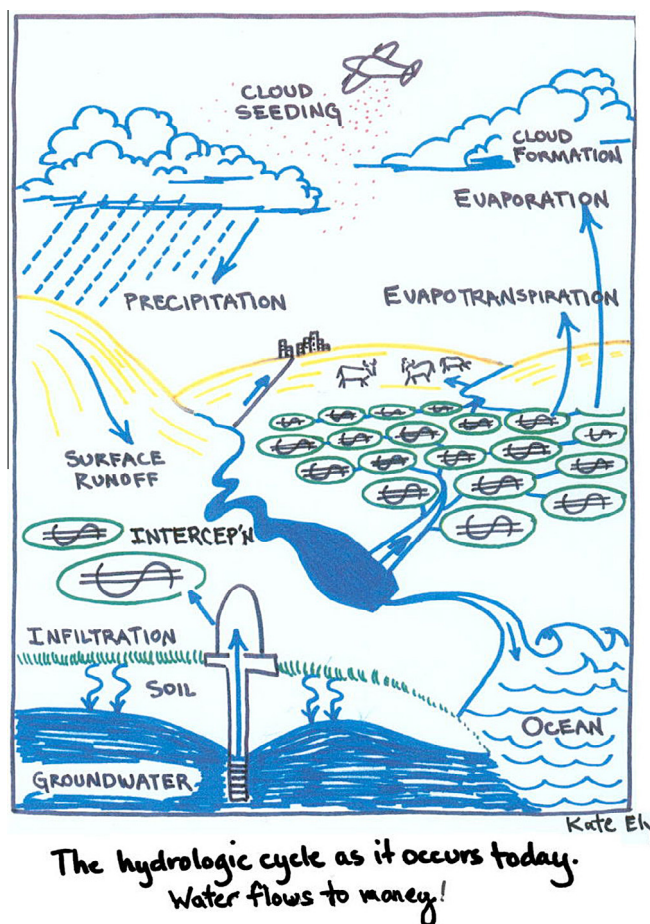 CLOUD
SEEDING
CLOUD
FORMATION
EVAPORATION
PRECIPITATION
EVAPOTRANSPIRATION
SURFACE
RUNOFF
INTERCEP'N
INFILTRATION
SOIL
OCEAN
GROUNDWATER
Kate El
The hydrologic cycle as it occurs today.
Water flows to money!